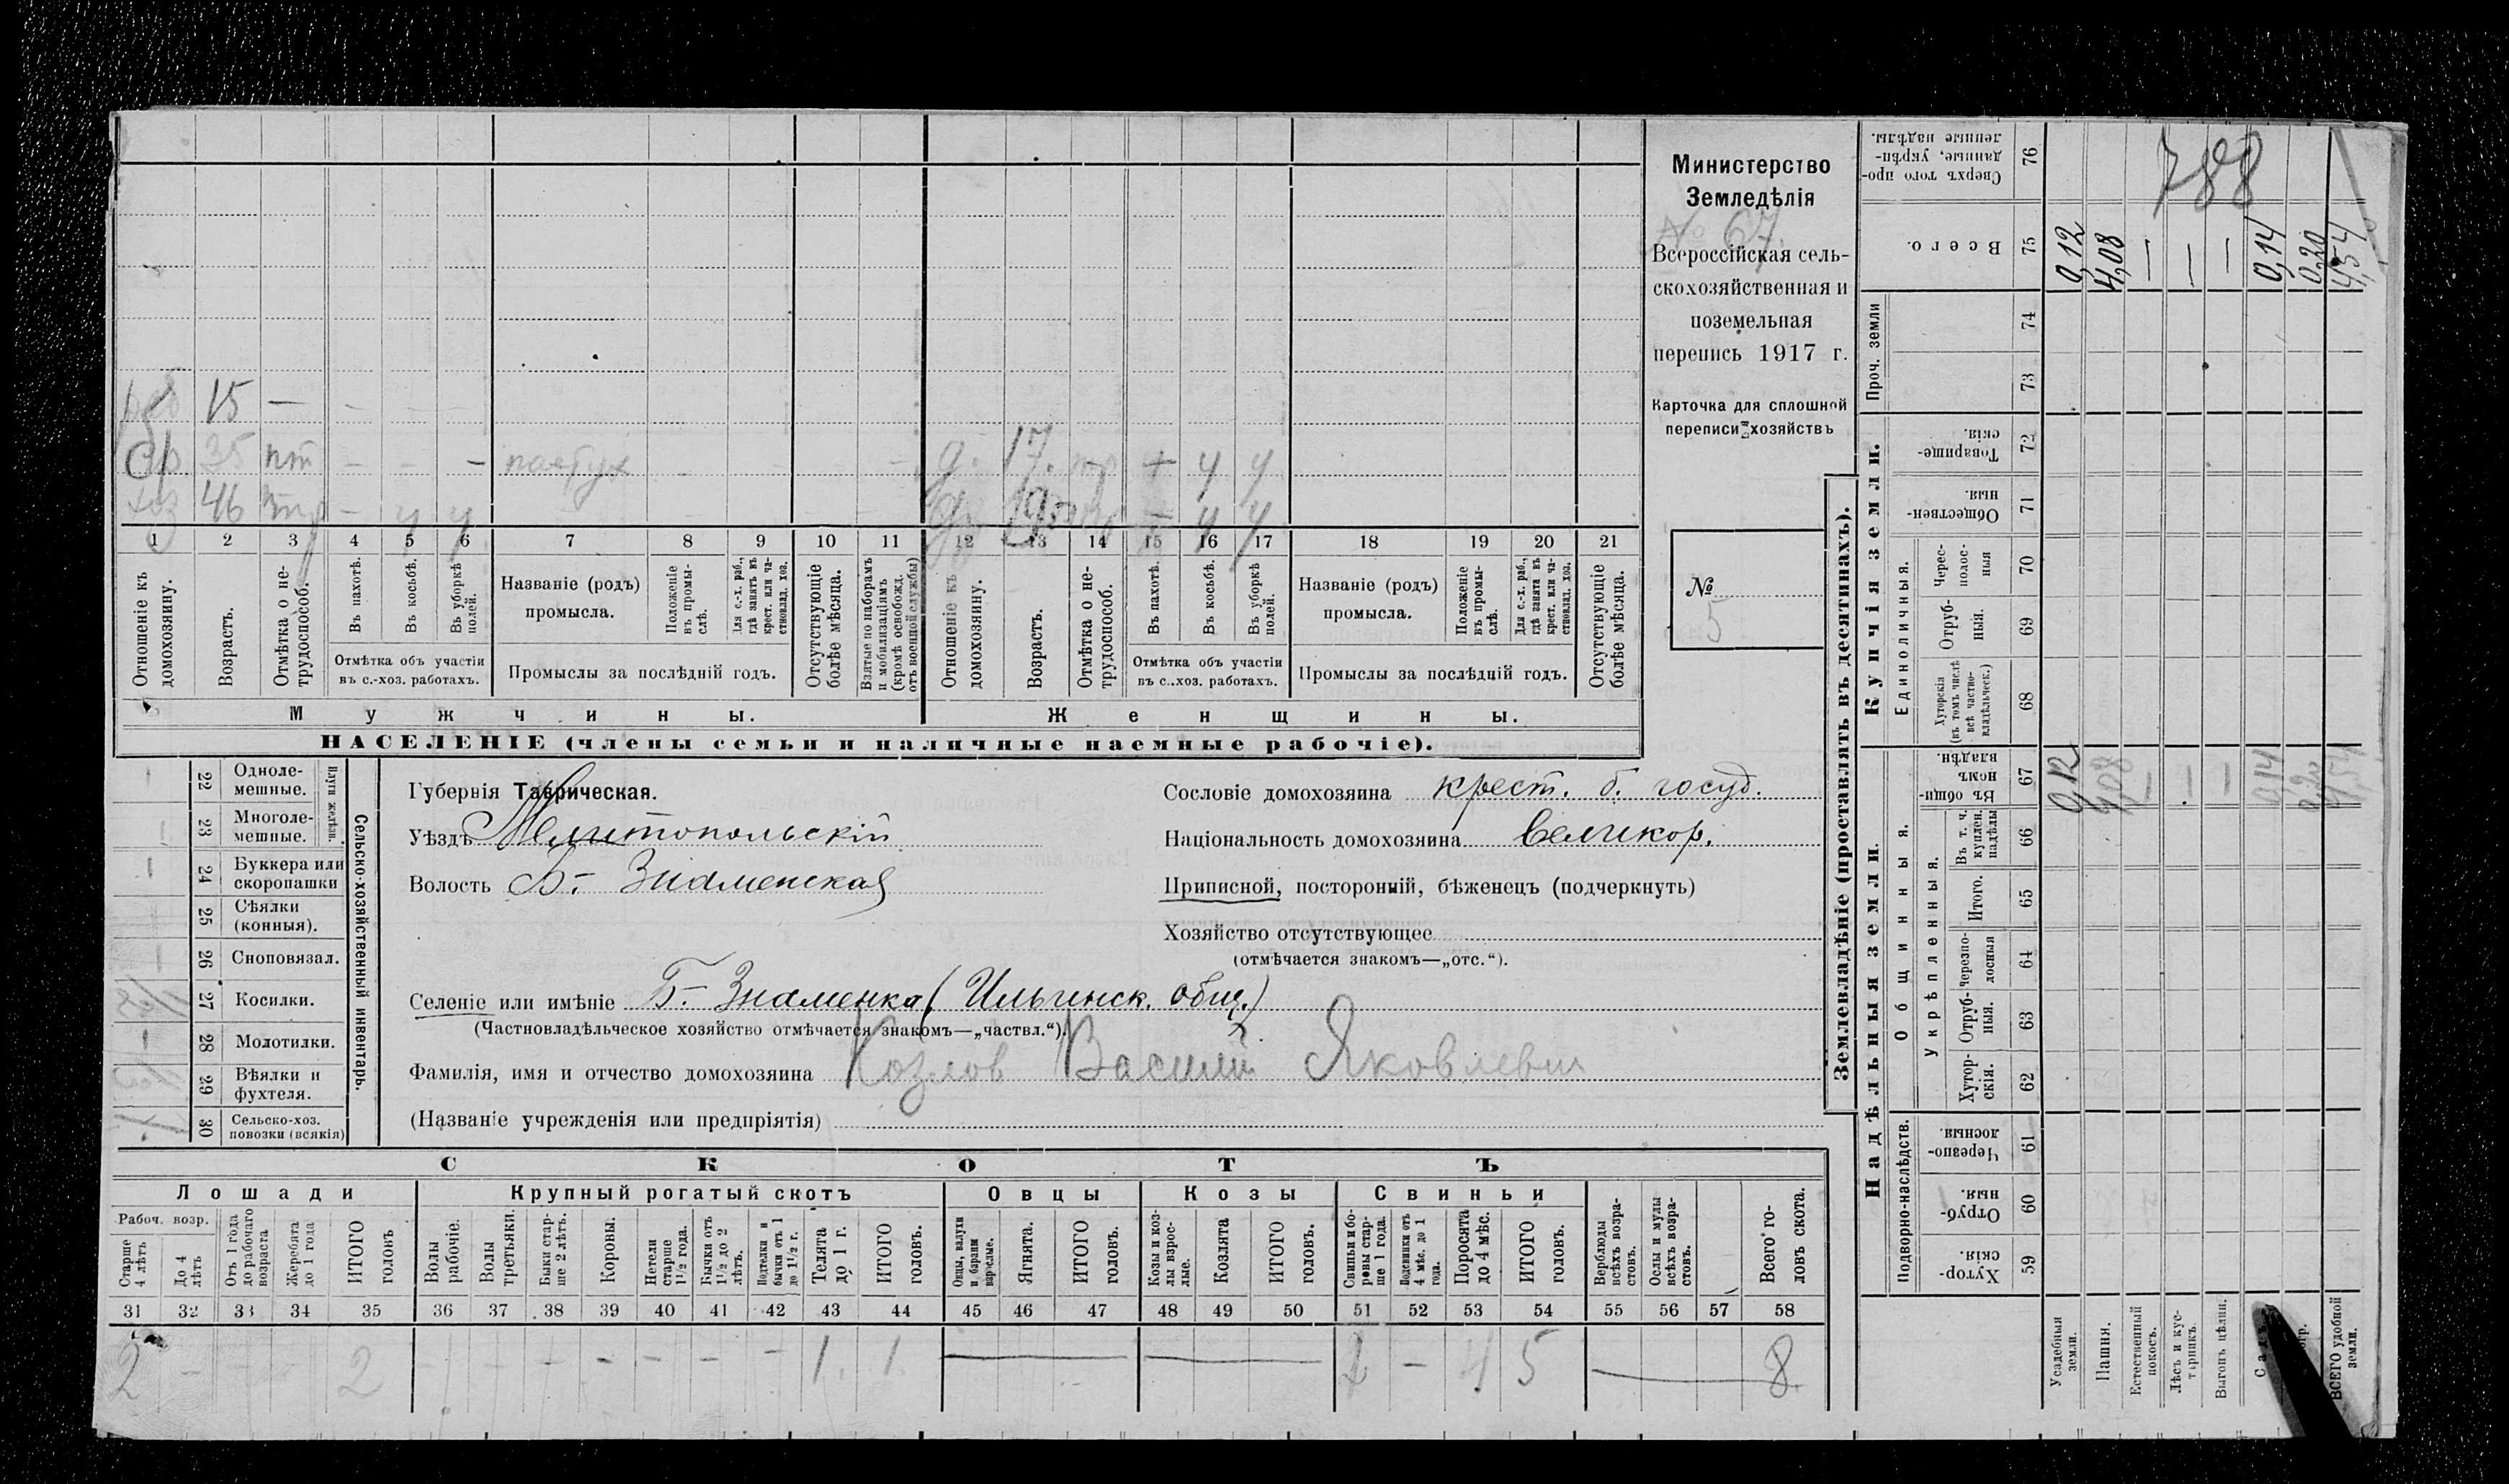 Министерство
Земледѣлія
№ 67.
Всероссійская сель-
скохозяйственная и
поземельная
перепись 1917 г.
Карточка для сплошной
переписи хозяйствъ
№
5
15 —
ср 35 пт — — — пастух
д. 17. + у у
хоз 46 — у у
19 у у
1 2 3 4 5 6 7 8 9 10 11 12 13 14 15 16 17 18 19 20 21
Отношеніе къ домохозяину.
Возрастъ.
Отмѣтка о не-трудоспособ.
Въ пахотѣ.
Въ косьбѣ.
Въ уборкѣ полей.
Отмѣтка объ участіи
въ с.-хоз. работахъ.
Названіе (родъ)
промысла.
Положеніе въ промы-слѣ.
Для с.-х. раб., гдѣ занятъ въ крест. или ча-стновлад. хоз.
Промыслы за послѣдній годъ.
Отсутствующіе болѣе мѣсяца.
Взятые по наборамъ и мобилизаціямъ (кромѣ освобожд. отъ военной службы)
Отношеніе къ домохозяину.
Возрастъ.
Отмѣтка о не-трудоспособ.
Въ пахотѣ.
Въ косьбѣ.
Въ уборкѣ полей.
Отмѣтка объ участіи
въ с.-хоз. работахъ.
Названіе (родъ)
промысла.
Положеніе въ промы-слѣ.
Для с.-х. раб., гдѣ занятъ въ крест. или ча-стновлад. хоз.
Промыслы за послѣдній годъ.
Отсутствующіе болѣе мѣсяца.
Мужчины.
Женщины.
НАСЕЛЕНІЕ (члены семьи и наличные наемные рабочіе).
Сельско-хозяйственный инвентарь.
Плуги желѣзн.
22 Одноле-мешные.
23 Многоле-мешные.
24 Буккера или скоропашки
25 Сѣялки (конныя).
26 Сноповязал.
27 Косилки.
28 Молотилки.
29 Вѣялки и фухтеля.
30 Сельско-хоз. повозки (всякія)
Губернія Таврическая.
Уѣздъ Мелитопольскій
Волость Б.- Знаменская
Селеніе или имѣніе Б.- Знаменка (Ильинск. общ.)
(Частновладѣльческое хозяйство отмѣчается знакомъ—„частвл.“)
Фамилія, имя и отчество домохозяина Козлов Василий Яковлевич
(Названіе учрежденія или предпріятія)
Сословіе домохозяина крест. б. госуд.
Національность домохозяина великор.
Приписной, посторонній, бѣженецъ (подчеркнуть)
Хозяйство отсутствующее
(отмѣчается знакомъ—„отс.“).
СКОТЪ
Лошади
Крупный рогатый скотъ
Овцы
Козы
Свиньи
Рабоч. возр.
Старше 4 лѣтъ
До 4 лѣтъ
Отъ 1 года до рабочаго возраста
Жеребята до 1 года
ИТОГО головъ
Волы рабочіе.
Волы третьяки.
Быки стар-ше 2 лѣтъ.
Коровы.
Нетели старше 1½ года.
Бычки отъ 1½ до 2 лѣтъ.
Подтелки и бычки отъ 1 до 1½ г.
Телята до 1 г.
ИТОГО головъ.
Овцы, валухи и бараны взрослые.
Ягнята.
ИТОГО головъ.
Козы и коз-лы взрос-лые.
Козлята
ИТОГО головъ.
Свиньи и бо-ровы стар-ше 1 года.
Подсвинки отъ 4 мѣс. до 1 года.
Поросята до 4 мѣс.
ИТОГО головъ.
Верблюды всѣхъ возра-стовъ.
Ослы и мулы всѣхъ возра-стовъ.
Всего го-ловъ скота.
31 32 33 34 35 36 37 38 39 40 41 42 43 44 45 46 47 48 49 50 51 52 53 54 55 56 57 58
2 — 2 — — — — — 1. 1. — — — 4 5 — 8
Землевладѣніе (проставлять въ десятинахъ).
Надѣльныя земли.
Купчія земли.
Проч. земли
Подворно-наслѣдств.
Общинныя.
Укрѣпленныя.
Единоличныя.
Хутор-скія. 59
Отруб-ныя. 60
Черезпо-лосныя. 61
Хутор-скія. 62
Отруб-ныя. 63
Черезпо-лосныя 64
Итого. 65
Въ т. ч. куплен. надѣлы 66
Въ общи-номъ владѣн. 67
Хуторскія (въ томъ числѣ всѣ частно-владѣльческ.) 68
Отруб-ныя. 69
Черес-полос-ныя 70
Обществен-ныя. 71
Товарище-скія. 72
73
74
Всего. 75
Сверхъ того про-данные, укрѣп-ленные надѣлы. 76
788
Усадебныя земли. 0,12 0,12
Пашня. 4,08 4,08
Естественный покосъ. — —
Лѣсъ и кус-тарникъ. — —
Выгонъ цѣлин. — —
Садъ 0,14 0,14
0,20
ВСЕГО удобной земли. 4,54 4,54